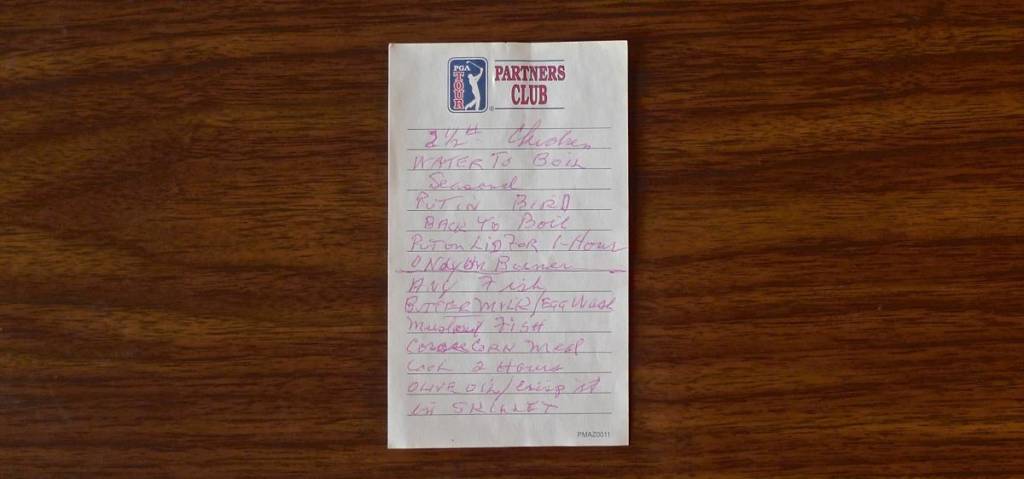 PGA TOUR
PARTNERS
CLUB
2 1/2 # Chicken
WATER TO BOIL
Seasoned
PUT IN BIRD
BACK TO BOIL
PUT ON LID FOR 1-HOUR
Burner
ANY Fish
BUTTER MILK/EGG Wash
Mustard FISH
CORN Meal
Cook 2 Hours
OLIVE OIL/Crisp it
in SKILLET
PMAZ0011